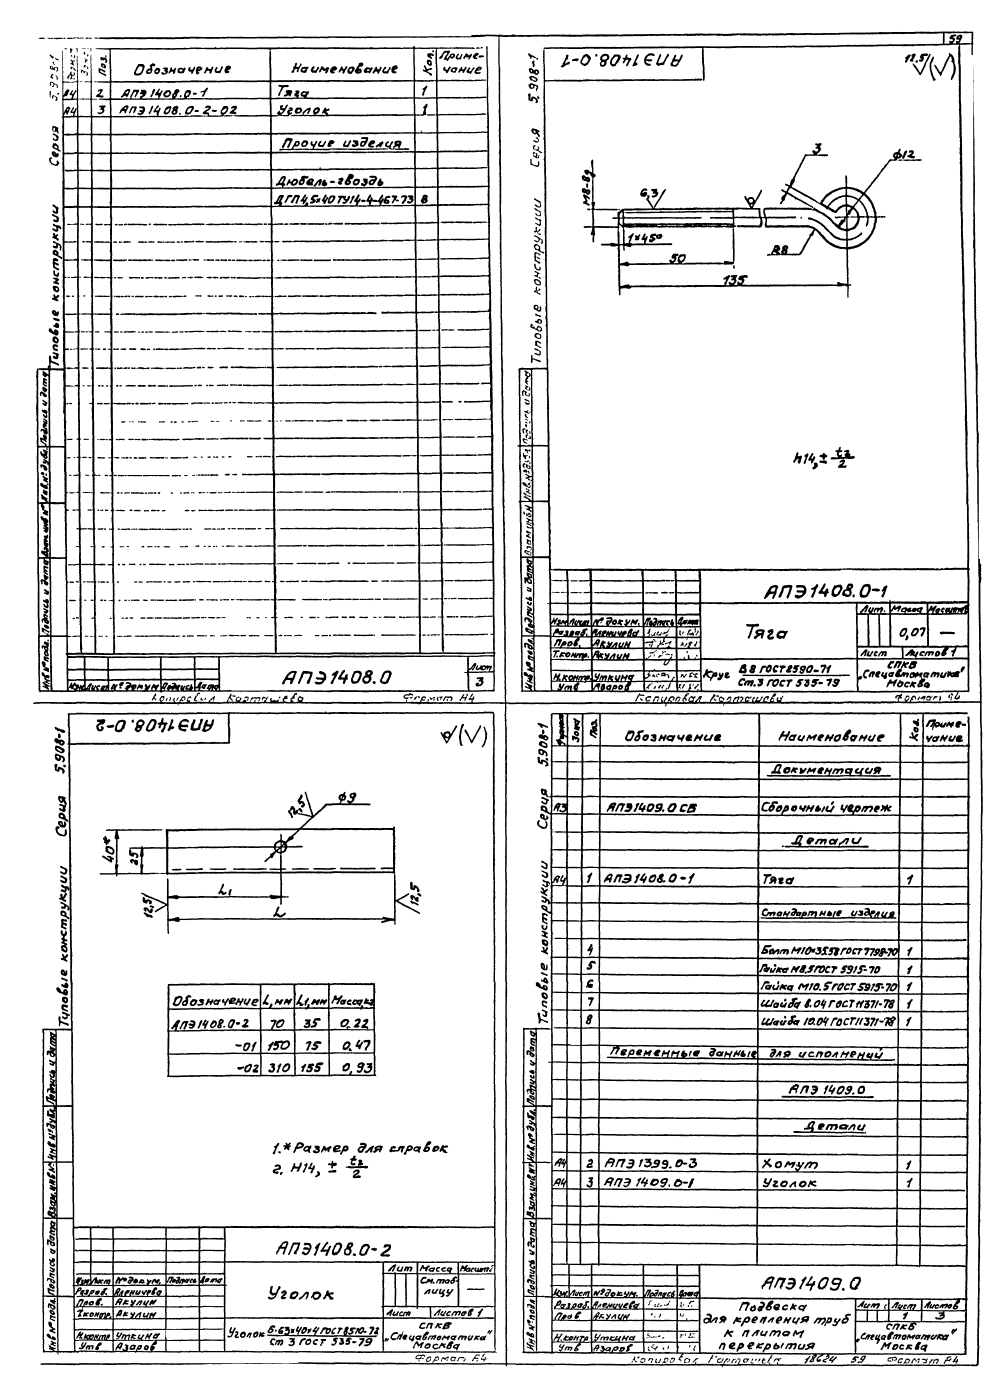 59
Серия 5.908-1
Типовые конструкции
Поз.
Обозначение
Наименование
Кол.
Приме-
чание
А4 2 АПЭ1408.0-1 Тяга 1
А4 3 АПЭ1408.0-2-02 Уголок 1
Прочие изделия
Дюбель-гвоздь
ДГП4,5×40 ТУ14-4-467-73 8
Инв.№подл. Подпись и дата Взам.инв.№ Инв.№дубл. Подпись и дата
Изм Лист №докум Подпись Дата
АПЭ1408.0
Лист
3
Копировал Карташева Формат А4
Серия 5.908-1
Типовые конструкции
АПЭ1408.0-1
12,5 (√)
3
ϕ12
М8-8g
6,3
1×45°
R8
50
135
h14, ± t2/2
Инв.№подл. Подпись и дата Взам.инв.№ Инв.№дубл. Подпись и дата
АПЭ1408.0-1
Изм Лист №докум. Подпись Дата
Разраб. Аленичева
Пров. Акулин
Т.контр. Акулин
Н.контр. Уткина
Утв Азаров
Тяга
Лит. Масса Масштаб
0,07 —
Лист Листов 1
Круг В8 ГОСТ2590-71
Ст.3 ГОСТ 535-79
СПКБ
"Спецавтоматика"
Москва
Копировал Карташева Формат А4
Серия 5.908-1
Типовые конструкции
АПЭ1408.0-2
(√)
12,5
ϕ9
40*
25
L1
L
12,5
12,5
Обозначение L,мм L1,мм Масса,кг
АПЭ1408.0-2 70 35 0,22
-01 150 75 0,47
-02 310 155 0,93
1.* Размер для справок
2. H14, ± t2/2
Инв.№подл. Подпись и дата Взам.инв.№ Инв.№дубл. Подпись и дата
АПЭ1408.0-2
Изм Лист №докум. Подпись Дата
Разраб. Аленичева
Пров. Акулин
Т.контр. Акулин
Н.контр Уткина
Утв Азаров
Уголок
Лит Масса Масшт
См.таб-
лицу —
Лист Листов 1
Уголок Б-63×40×4 ГОСТ8510-72
Ст 3 ГОСТ 535-79
СПКБ
"Спецавтоматика"
Москва
Формат А4
Серия 5.908-1
Типовые конструкции
Формат
Зона
Поз.
Обозначение
Наименование
Кол.
Приме-
чание
Документация
А3 АПЭ1409.0 СБ Сборочный чертеж
Детали
А4 1 АПЭ1408.0-1 Тяга 1
Стандартные изделия
4 Болт М10×35.58 ГОСТ 7798-70 1
5 Гайка М8.5 ГОСТ 5915-70 1
6 Гайка М10.5 ГОСТ5915-70 1
7 Шайба 8.04 ГОСТ11371-78 1
8 Шайба 10.04 ГОСТ11371-78 1
Переменные данные для исполнений
АПЭ 1409.0
Детали
А4 2 АПЭ1399.0-3 Хомут 1
А4 3 АПЭ 1409.0-1 Уголок 1
Инв.№подл. Подпись и дата Взам.инв.№ Инв.№дубл. Подпись и дата
АПЭ1409.0
Изм Лист №докум. Подпись Дата
Разраб. Аленичева
Пров Акулин
Н.контр Уткина
Утв Азаров
Подвеска
для крепления труб
к плитам
перекрытия
Лит Лист Листов
1 3
СПКБ
"Спецавтоматика"
Москва
Копировал Карташева 18624 59 Формат А4